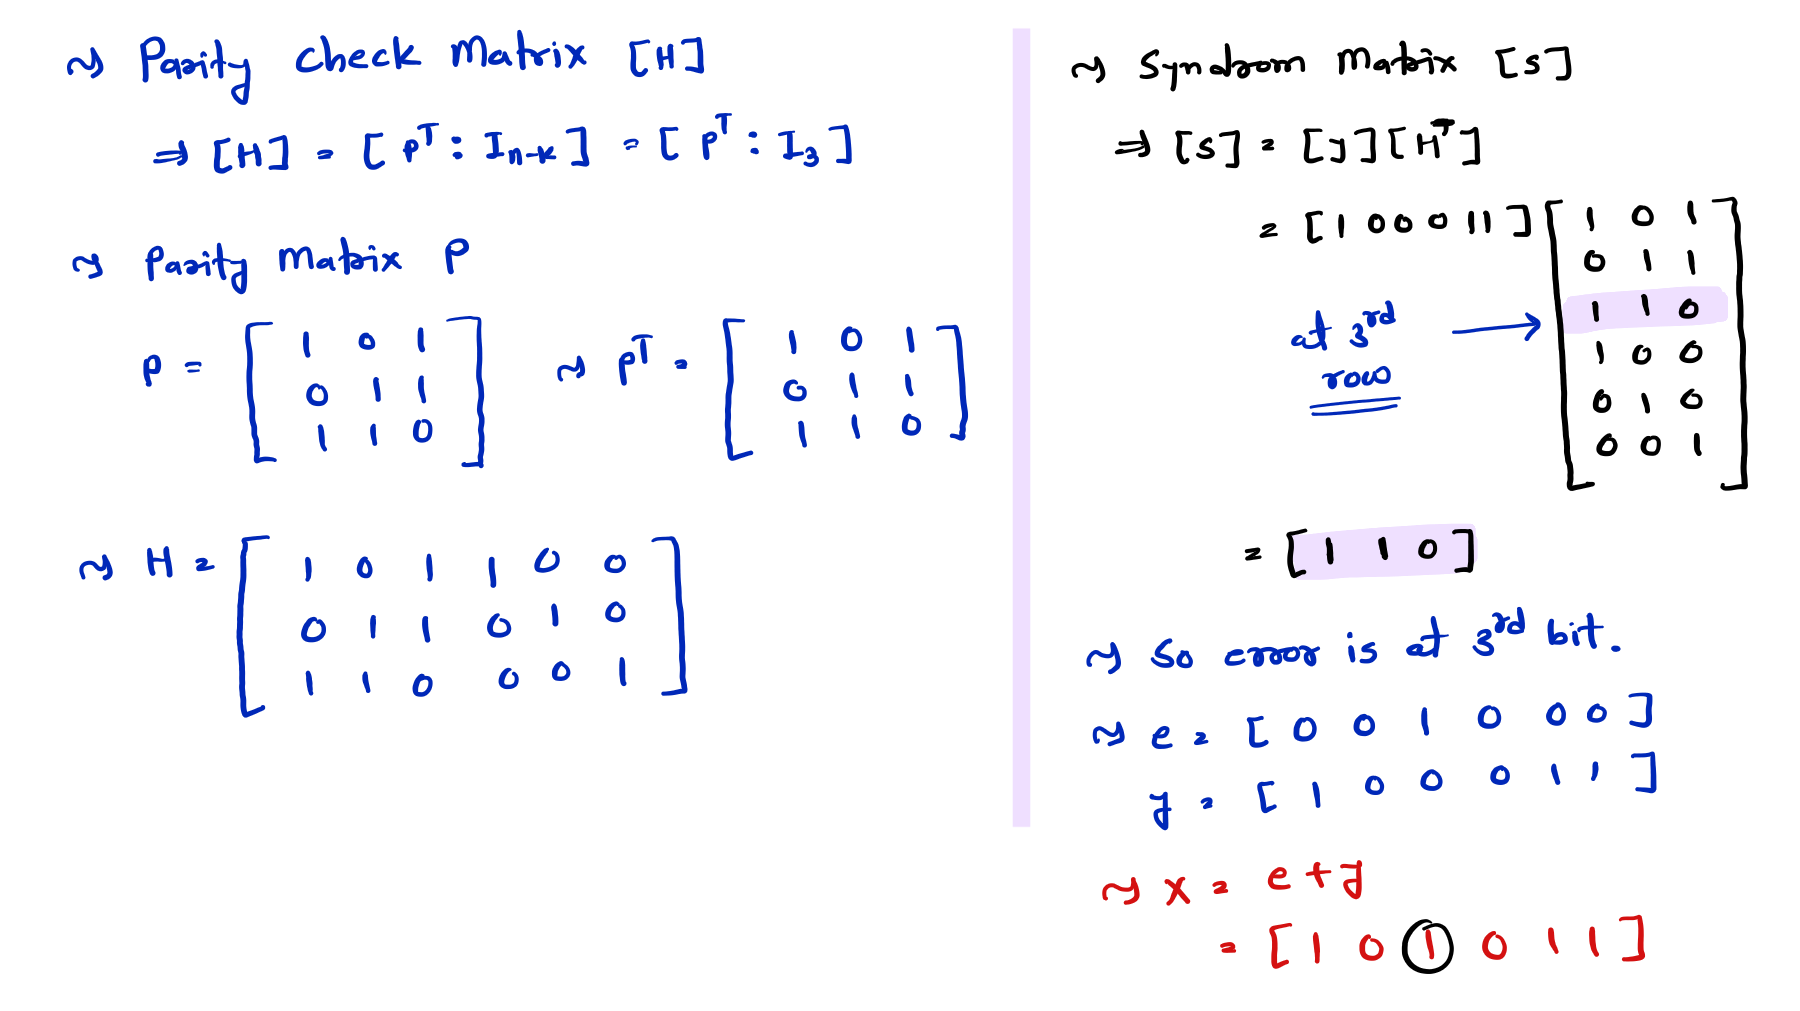 ~ Parity Check Matrix [H]
⇒ [H] = [ P^T : I_{n-k} ] = [ P^T : I_3 ]
~ Parity Matrix P
P = [ 1 0 1
0 1 1
1 1 0 ]
~ P^T = [ 1 0 1
0 1 1
1 1 0 ]
~ H = [ 1 0 1 1 0 0
0 1 1 0 1 0
1 1 0 0 0 1 ]
~ Syndrom Matrix [S]
⇒ [S] = [y][H^T]
= [1 0 0 0 1 1] [ 1 0 1
0 1 1
1 1 0
1 0 0
0 1 0
0 0 1 ]
at 3rd →
row
= [ 1 1 0 ]
~ So error is at 3rd bit.
~ e = [ 0 0 1 0 0 0 ]
y = [ 1 0 0 0 1 1 ]
~ X = e + y
= [ 1 0 1 0 1 1 ]